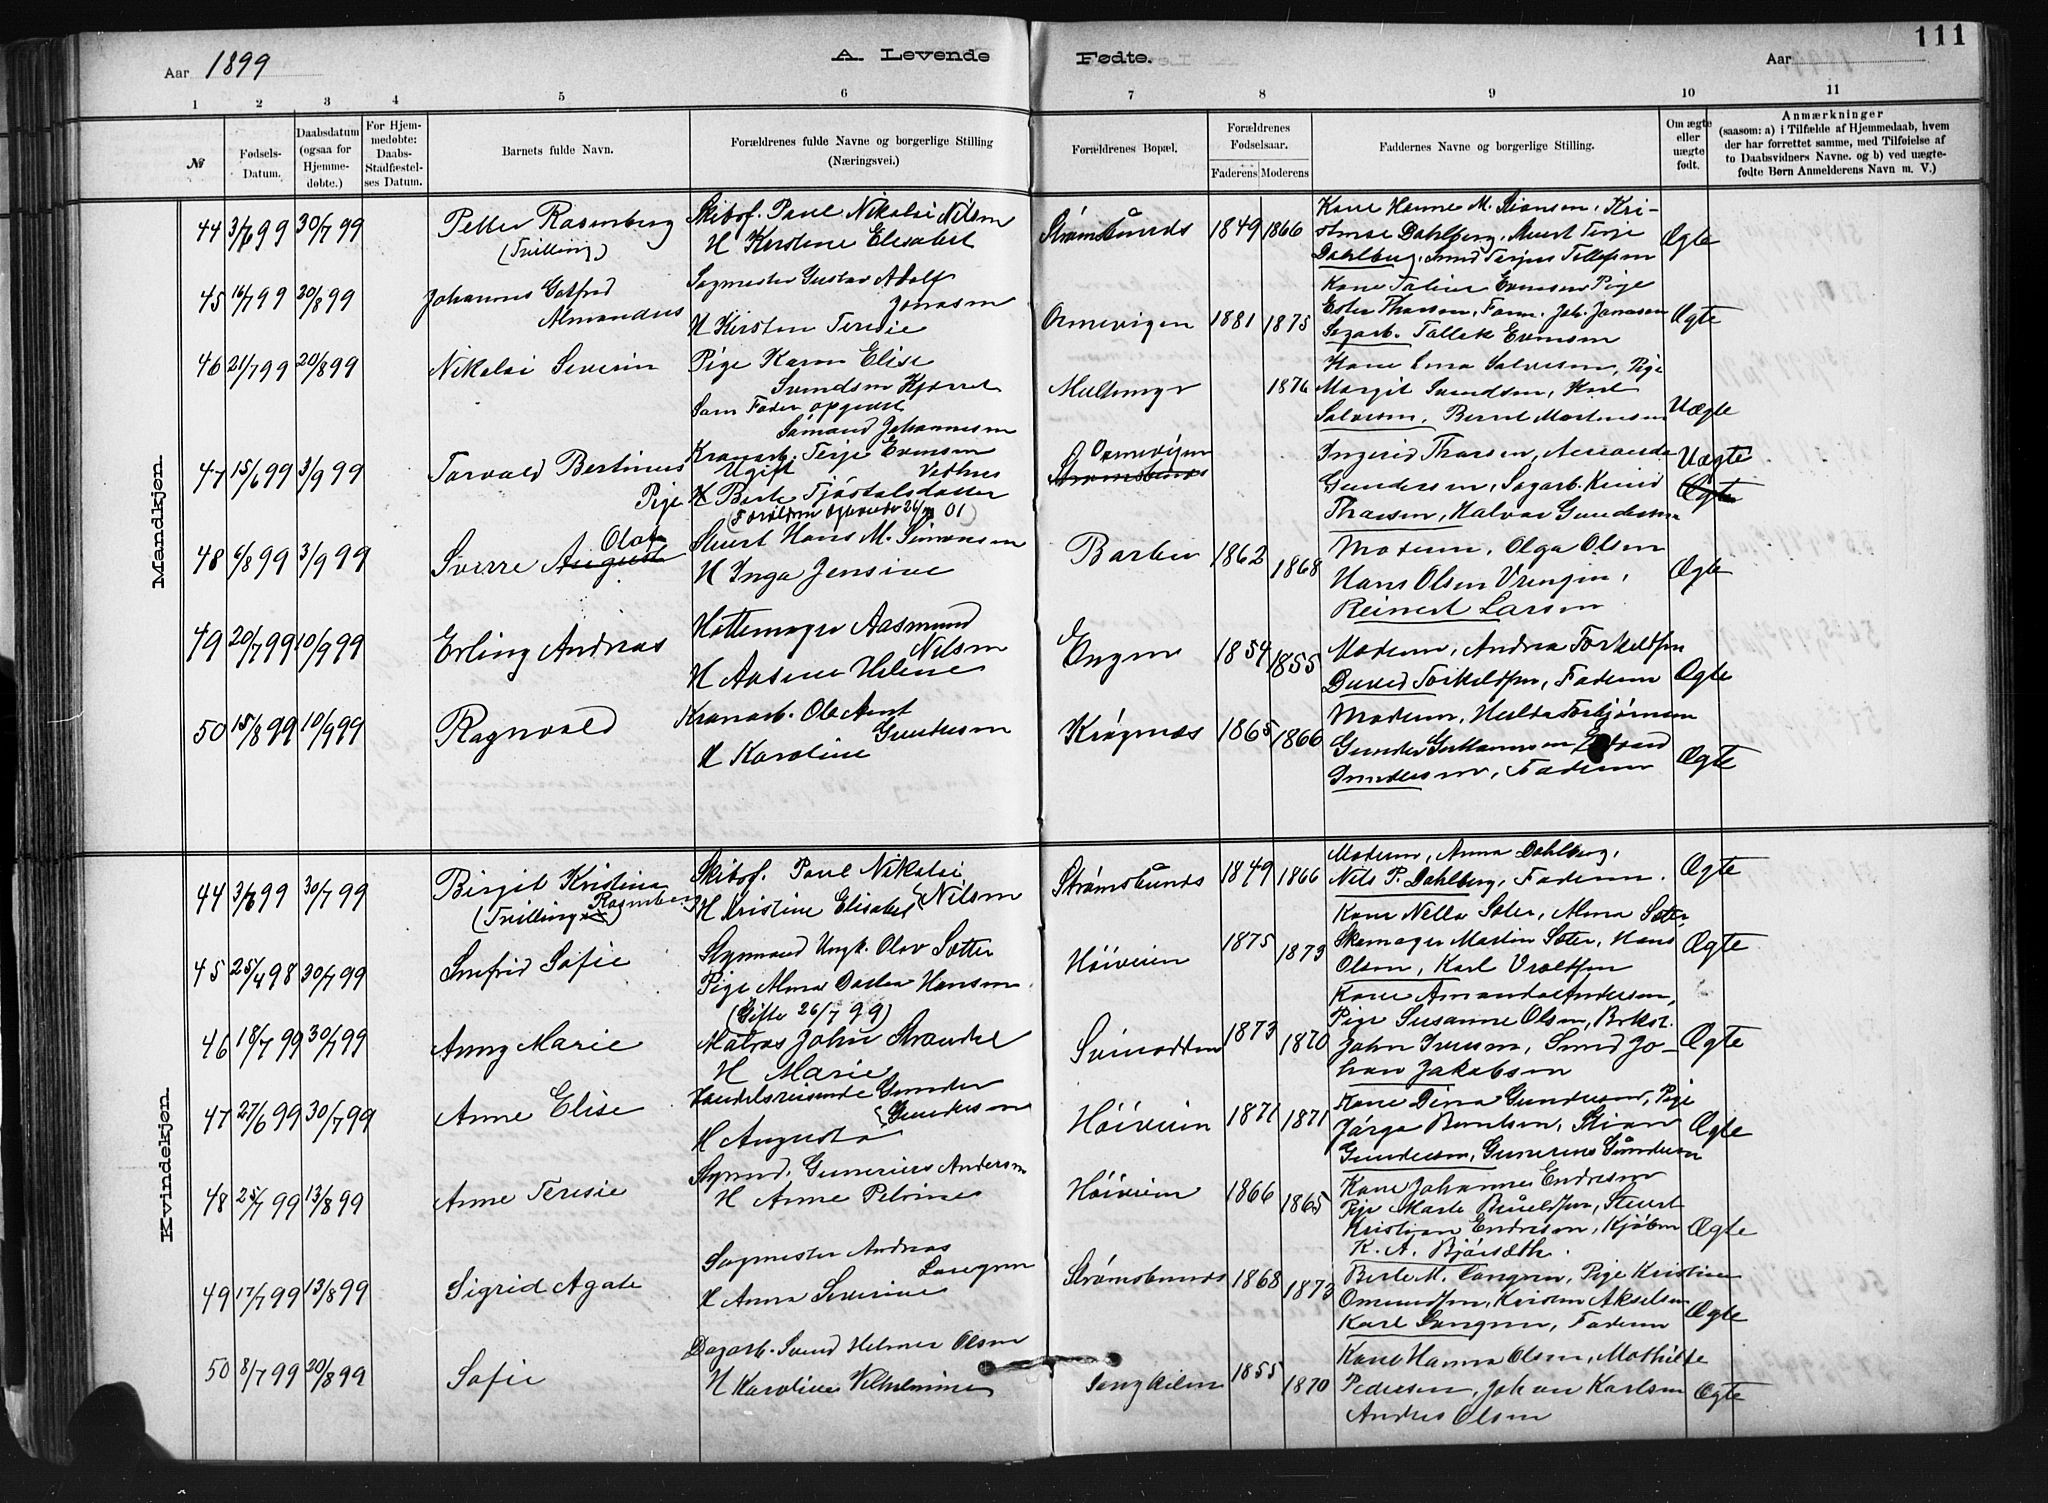 111
Aar 1899
A. Levende Fødte.
Aar
1 2 3 4 5 6 7 8 9 10 11
№
Fødsels-Datum.
Daabsdatum (ogsaa for Hjemmedøbte.)
For Hjemmedøbte: Daabs-Stadfæstelses Datum.
Barnets fulde Navn.
Forældrenes fulde Navne og borgerlige Stilling (Næringsvei.)
Forældrenes Bopæl.
Forældrenes Fødselsaar.
Faderens Moderens
Faddernes Navne og borgerlige Stilling.
Om ægte eller uægte født.
Anmærkninger
(saasom: a) i Tilfælde af Hjemmedaab, hvem der har forrettet samme, med Tilføielse af to Daabsvidners Navne, og b) ved uægtefødte Børn Anmelderens Navn m. V.)
Mandkjøn.
44 3/6 99 30/7 99 Petter Rosenberg (Tvilling)
Skibsf. Paul Nikolai Nilsen
H Kirstine Elisabet
Strømsbunds 1849 1866
Kone Hanne M. Kristine Dahlberg, Terje Dahlberg, Terjus Tellefsen
Ægte
45 16/7 99 20/8 99 Johannes Gotfred Almandus
Sagmester Gustav Adolf Jonasen
H Kirsten Teresie
Ormevigen 1881 1875
Kone Tobine Evensen Pige
Ester Thorsen, Form. Joh. Jonasen
Sagarb. Tallak Evensen
Ægte
46 21/7 99 20/8 99 Nikolai Severin
Pige Karen Elise
Svendsen Kjørret
Som Fader opgivet
Sømand Johannesen
1876
Kone Salvesen, Pige
Margit Svendsen, Karl
Salvesen, Bernt Mortensen
Uægte
47 15/6 99 3/9 99 Torvald Bertinus
Kranarb. Terje Evensen
Ugift
Pige H Berte Tjøstolsdatter
(Forældrene 01)
Ormevigen
Strømsbunds
Ingerid Thorsen,
Gundersen, Sagarb. Knud
Thorsen, Halvor Gundersen
Uægte
Ægte
48 6/8 99 3/9 99 Sverre August Olaf
Stuert Hans M. Simonsen
H Inga Jensine
Barbu 1862 1868
Moderen, Olga Olsen
Hans Olsen Vrengen,
Reinert Larsen
Ægte
49 20/7 99 10/9 99 Erling Andreas
Hattemager Aasmund Nilsen
H Aasine Helene
Engene 1854 1855
Moderen, Andrea Torkeldsen
David Torkeldsen, Faderen
Ægte
50 15/8 99 10/9 99 Ragnvald
Kranarb. Ole Arnt Gundersen
H Karoline
Krøgenæs 1865 1866
Moderen, Hulda Torbjørnsen
Gunder
Gundersen, Faderen
Ægte
Kvindekjøn.
44 3/6 99 30/7 99 Birgit Kristine Rosenberg (Tvilling)
Skibsf. Paul Nikolai Nilsen
H Kristine Elisabet
Strømsbunds 1849 1866
Moderen, Anna Dahlberg,
Nils P. Dahlberg, Faderen.
Ægte
45 25/4 98 30/7 99 Snefrid Sofie
Styrmand Ungk. Olav Sotter
Pige Alma Dortea Hansen
(Gifte 26/7 99)
Høiveien 1875 1873
Kone Nella Soter, Alma Soter,
Skomager Martin Soter, Hans
Olsen, Karl Vroldsen
Ægte
46 18/7 99 30/7 99 Anny Marie
Matros John Strandel
H Marie
Svinodden 1873 1870
Kone Amanda Andersen,
Pige Susanne Olsen,
John Iversen, Smed Johan Jakobsen
Ægte
47 27/6 99 30/7 99 Anne Elise
Handelsreisende Gunder Gundersen
H Augusta
Høiveien 1871 1871
Kone Dina Gundersen, Pige
Jørga Berntsen, Stian
Gundersen, Gunerius Gundersen
Ægte
48 25/7 99 13/8 99 Anne Teresie
Styrmd. Gunerius Andersen
H Anne Petrine
Høiveien 1866 1865
Kone Johanne Endresen
Pige Marte Stuert
Kristian Endresen, Kjøbm
K. A. Bjørsæth.
Ægte
49 17/7 99 13/8 99 Sigrid Agate
Sagmester Andreas Langen
H Anna Severine
Strømsbunds 1868 1873
Berte M. Langen, Pige Kristine
Omundsen, Kristen Akselsen
Karl Langen, Faderen
Ægte
50 8/7 99 20/8 99 Sofie
Dagarb. Svend Helmer Olsen
H Karoline Vilhelmine
1855 1870
Kone Hanna Olsen, Mathilde
Pedersen, Johan Karlsen
Anders Olsen
Ægte